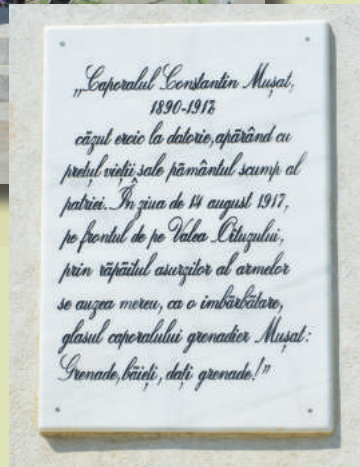 „Caporalul Constantin Mușat,
1890-1917
căzut eroic la datorie, apărând cu
prețul vieții sale pământul scump al
patriei. În ziua de 14 august 1917,
pe frontul de pe Valea Oituzului,
prin răpăitul asurzitor al armelor
se auzea mereu, ca o îmbărbătare,
glasul caporalului grenadier Mușat:
Grenade, băieți, dați grenade!"